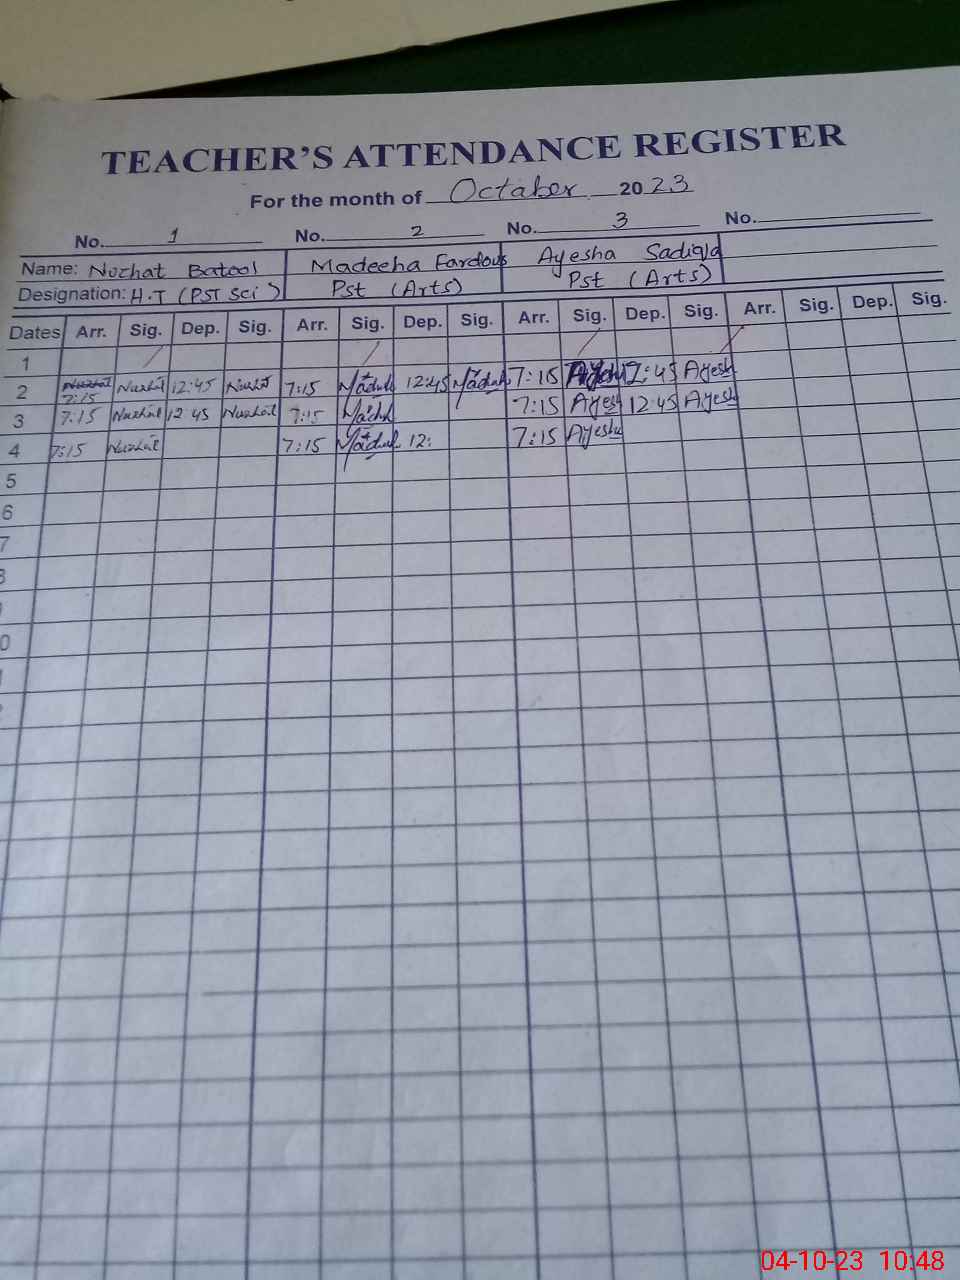 TEACHER'S ATTENDANCE REGISTER
For the month of October 2023
No. 1 No. 2 No. 3 No.
Name: Nozhat Batool Madeeha Fardous Ayesha Sadiqa
Designation: H.T (PST Sci) Pst (Arts) Pst (Arts)
Dates Arr. Sig. Dep. Sig. Arr. Sig. Dep. Sig. Arr. Sig. Dep. Sig. Arr. Sig. Dep. Sig.
1
2 7:15 Nuzhat 12:45 Nuzhat 7:15 12:45 7:15 12:45 Ayesh
3 7:15 Nuzhat 12 45 Nuzhat 7:15 7:15 Ayesh 12 45 Ayesh
4 7:15 Nuzhat 7:15 12: 7:15 Ayesha
5
6
7
04-10-23 10:48